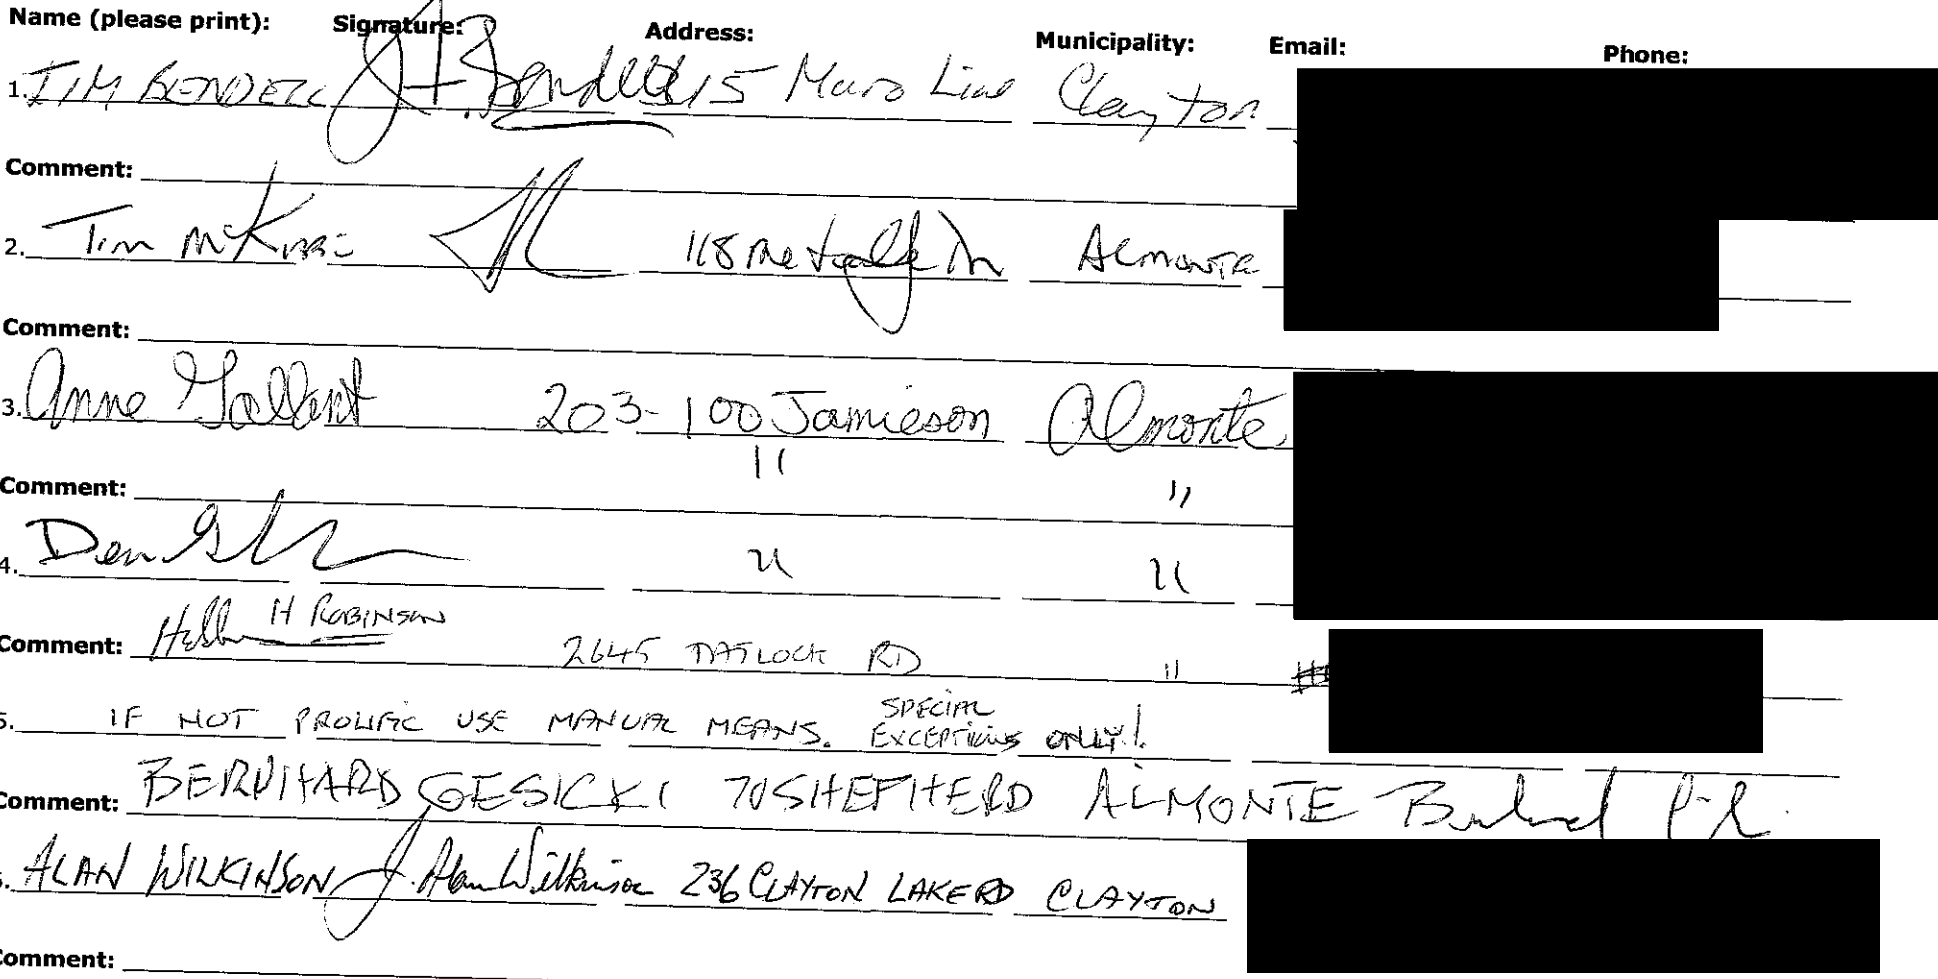 Name (please print): Signature: Address: Municipality: Email: Phone:
1. TIM BENDELL Bendell Clayton
Comment:
2. Tim 118 Metcalfe ALMONTE
Comment:
3. Anne Gallant 203-100 Jamieson Almonte
" "
Comment:
4. Den " "
H ROBINSON
Comment: 2645 TATLOCK RD "
5. IF NOT PROLIFIC USE MANUAL MEANS. SPECIAL EXCEPTIONS ONLY!
Comment: BERNHARD GESICKI 70 SHEPHERD ALMONTE
ALAN WILKINSON J. Alan Wilkinson 236 CLAYTON LAKE RD CLAYTON
Comment: